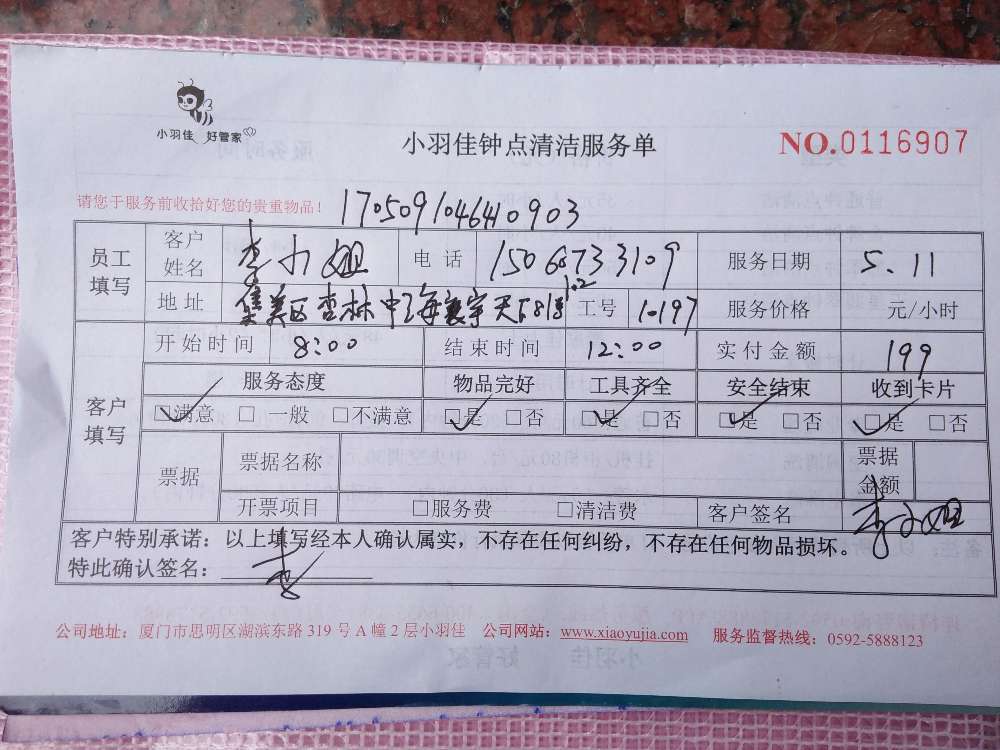 小羽佳 好管家
小羽佳钟点清洁服务单
NO.0116907
请您于服务前收拾好您的贵重物品！
1705091046410903
员工填写 客户姓名 李小姐 电话 15068733109 服务日期 5.11
地址 集美区杏林中海寰宇天下818 1.2 工号 1.197 服务价格 元/小时
客户填写 开始时间 8:00 结束时间 12:00 实付金额 199
服务态度 物品完好 工具齐全 安全结束 收到卡片
☑满意 □一般 □不满意 ☑是 □否 ☑是 □否 ☑是 □否 ☑是 □否
票据 票据名称 票据金额
开票项目 □服务费 □清洁费 客户签名 李小姐
客户特别承诺：以上填写经本人确认属实，不存在任何纠纷，不存在任何物品损坏。
特此确认签名： 李
公司地址：厦门市思明区湖滨东路 319 号 A 幢 2 层小羽佳 公司网站：www.xiaoyujia.com 服务监督热线：0592-5888123